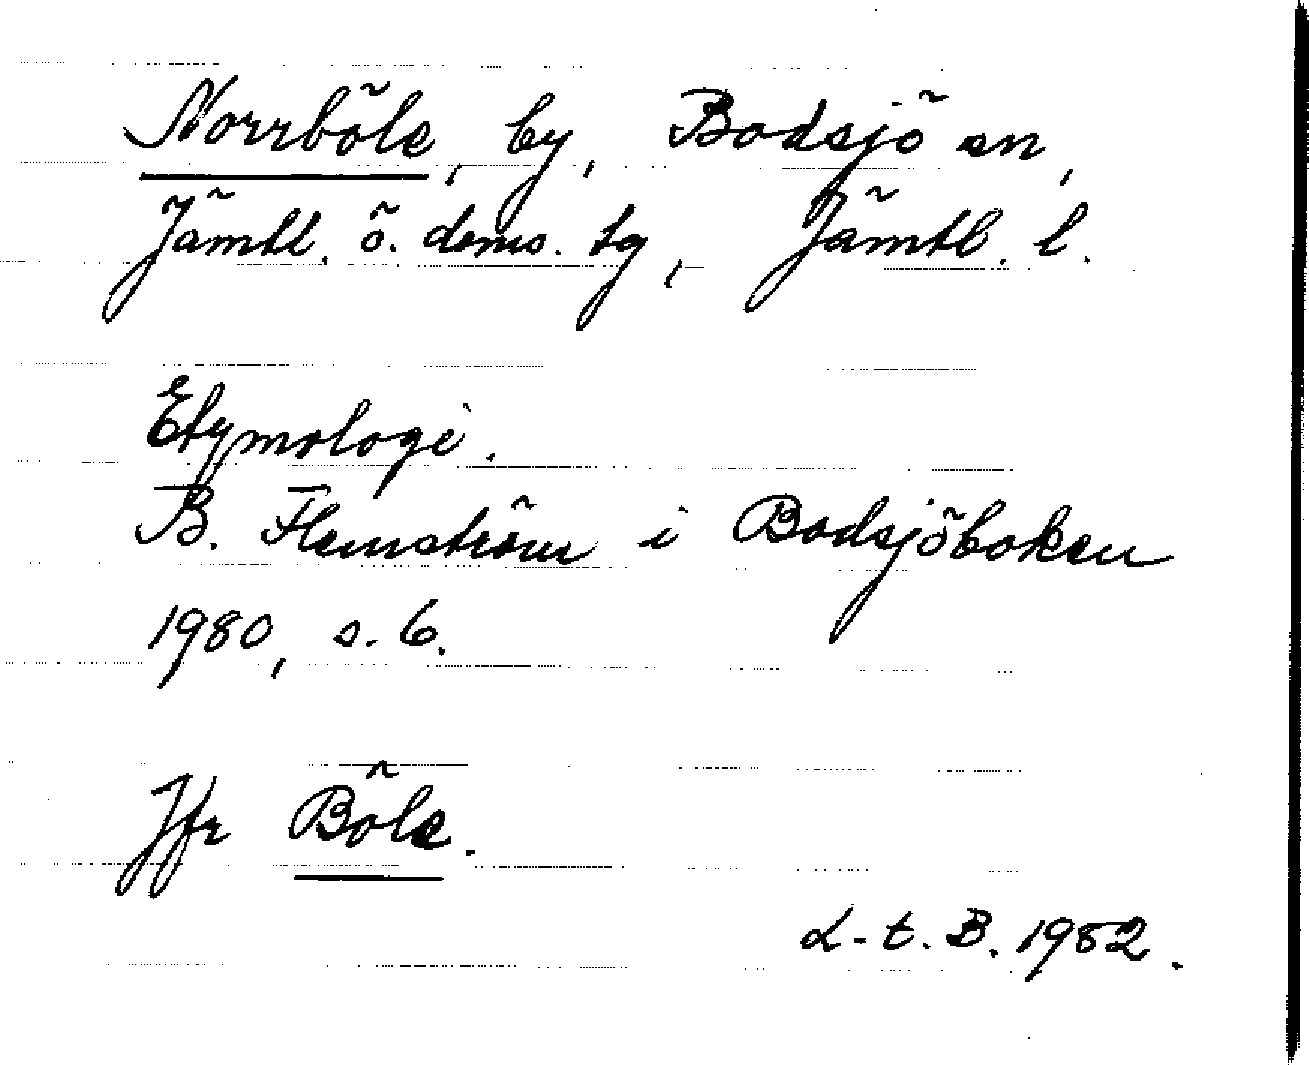 Norrböle, by, Bodsjö sn,
Jämtl. ö. doms. tg, Jämtl. l.
Etymologi.
B. Flemström i Bodsjöboken
1980, s. 6.
Jfr Böle.
L-t. B. 1982.